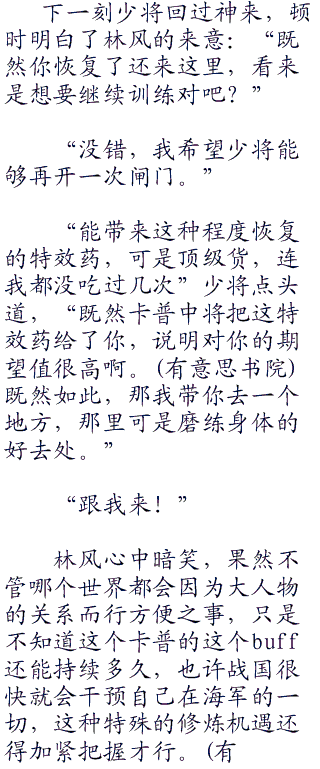 下一刻少将回过神来，顿
时明白了林风的来意：“既
然你恢复了还来这里，看来
是想要继续训练对吧？”
“没错，我希望少将能
够再开一次闸门。”
“能带来这种程度恢复
的特效药，可是顶级货，连
我都没吃过几次”少将点头
道，“既然卡普中将把这特
效药给了你，说明对你的期
望值很高啊。(有意思书院)
既然如此，那我带你去一个
地方，那里可是磨练身体的
好去处。”
“跟我来！”
林风心中暗笑，果然不
管哪个世界都会因为大人物
的关系而行方便之事，只是
不知道这个卡普的这个buff
还能持续多久，也许战国很
快就会干预自己在海军的一
切，这种特殊的修炼机遇还
得加紧把握才行。(有